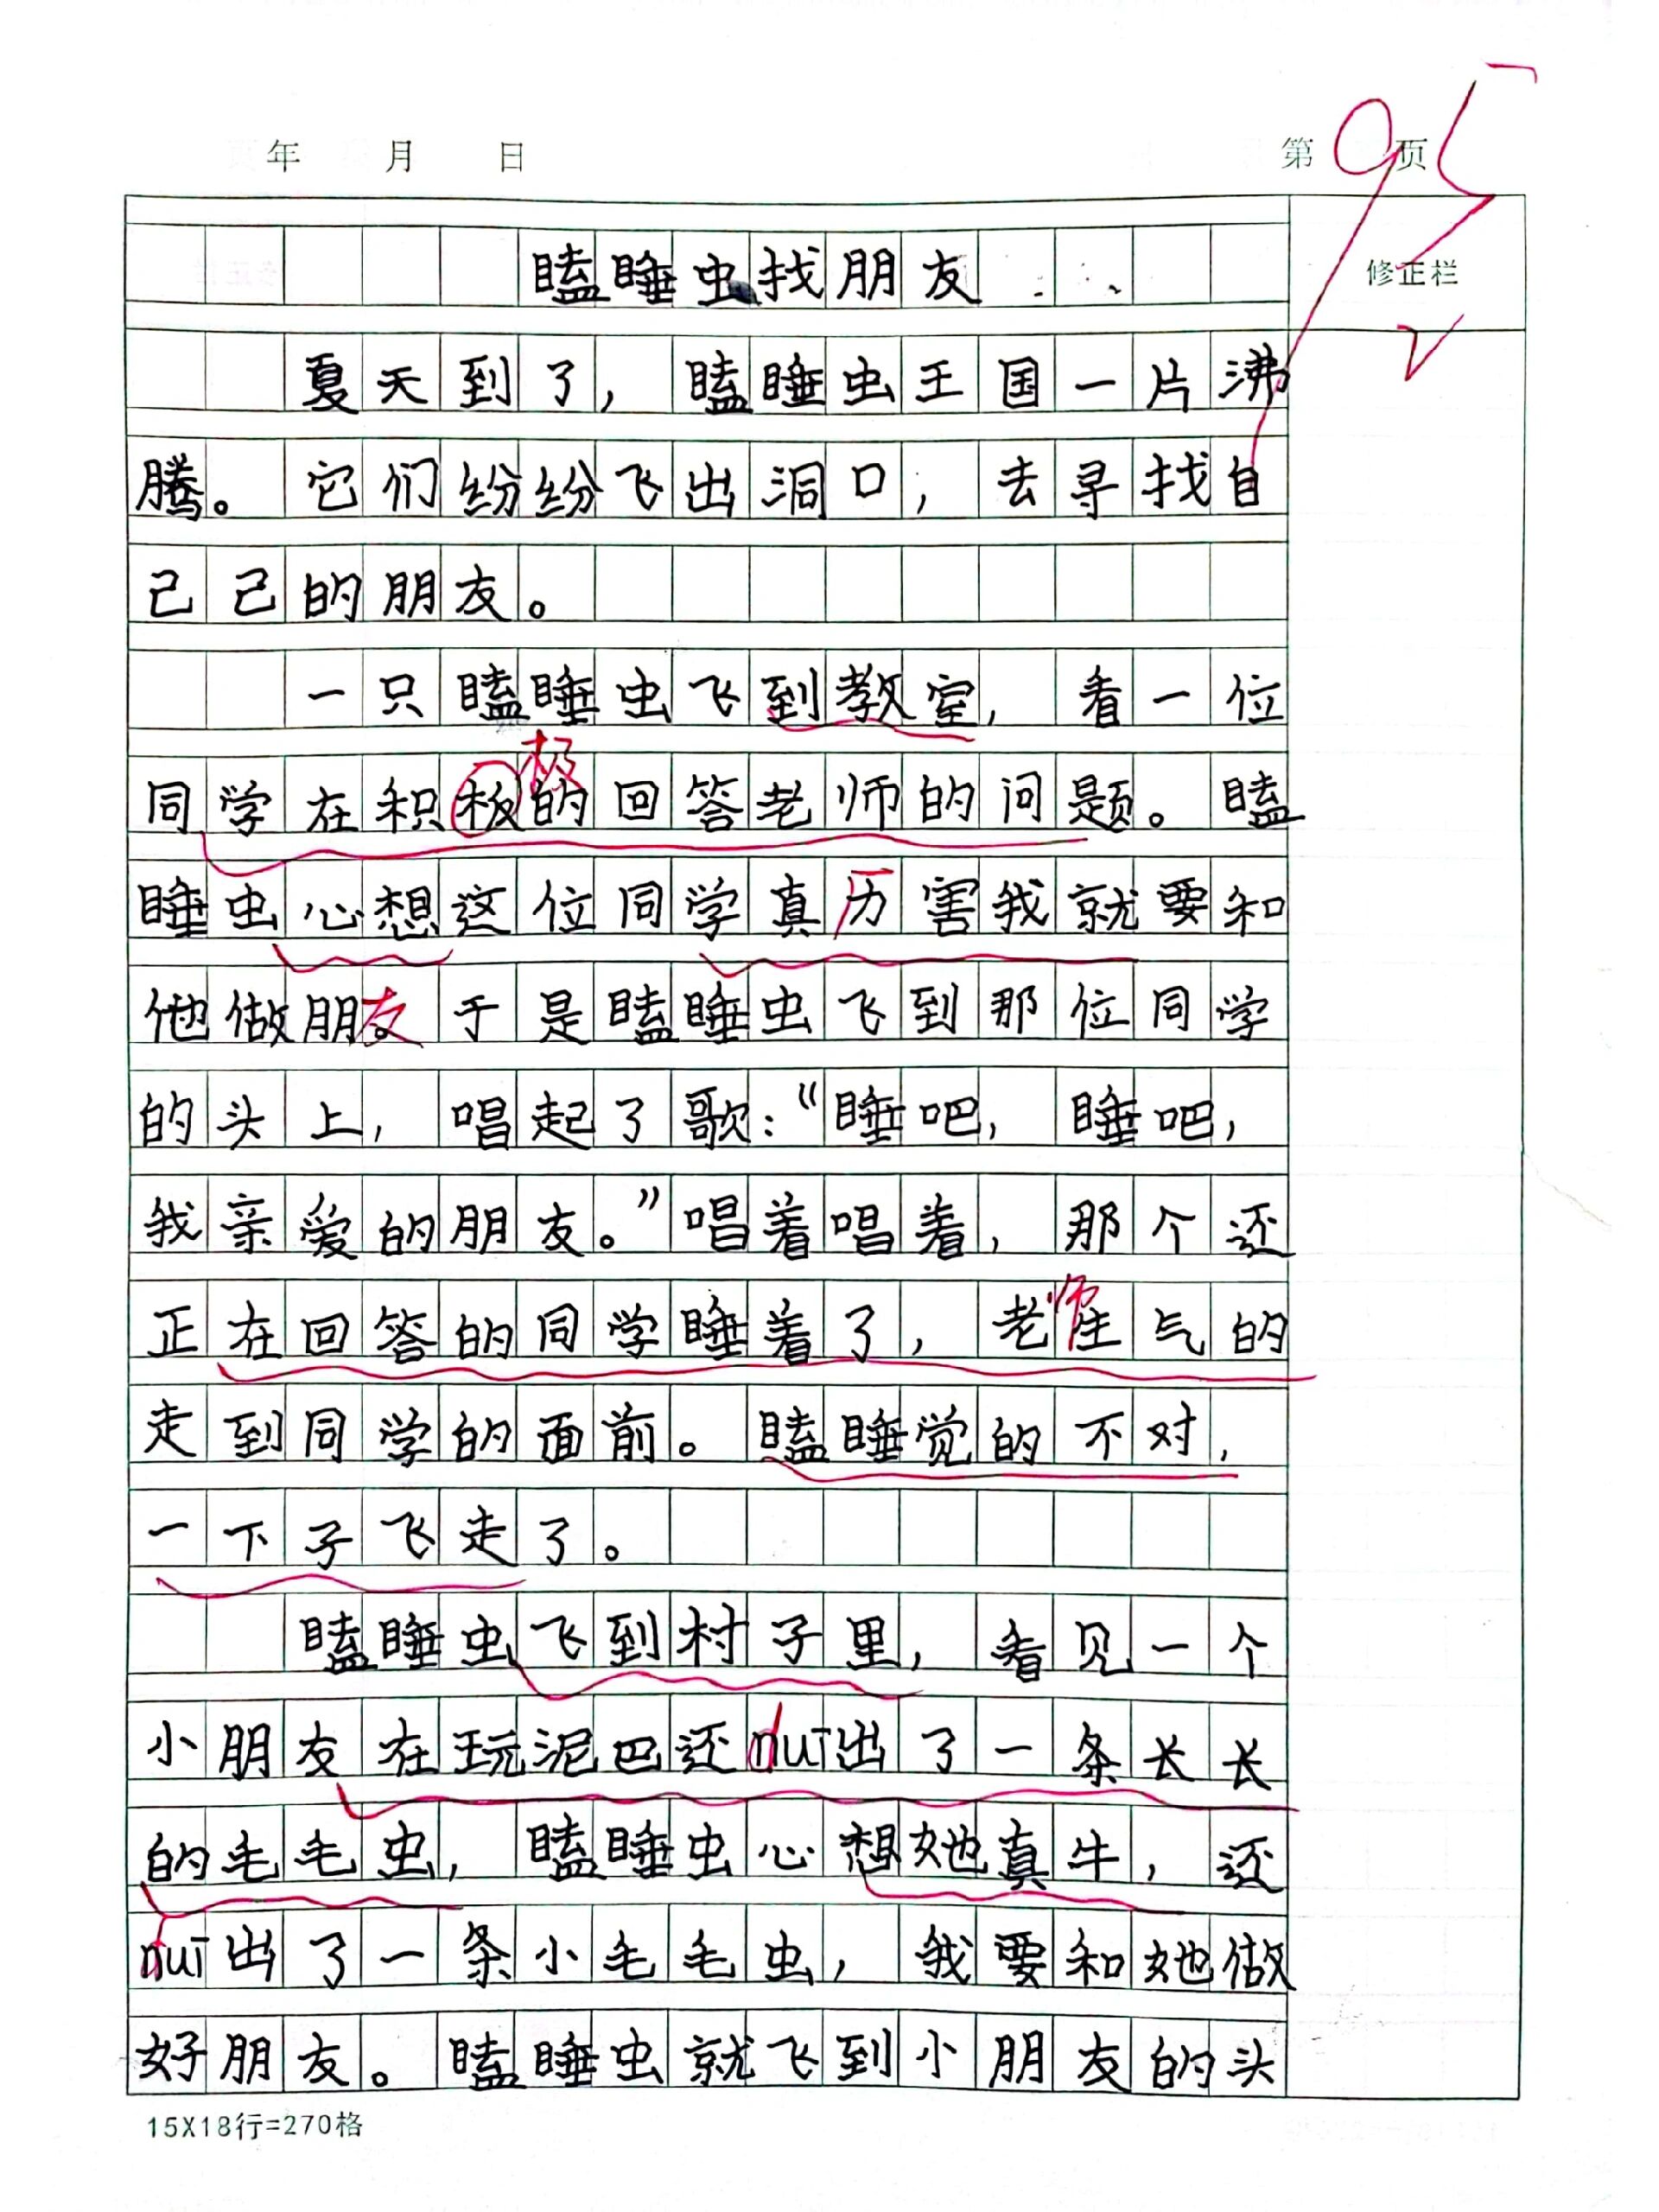 95
年 月 日 第 页
瞌睡虫找朋友
修正栏
夏天到了，瞌睡虫王国一片沸
腾。它们纷纷飞出洞口，去寻找自
己己的朋友。
一只瞌睡虫飞到教室，看一位
极
同学在积板的回答老师的问题。瞌
睡虫心想这位同学真历害我就要和
他做朋友于是瞌睡虫飞到那位同学
的头上，唱起了歌：“睡吧，睡吧，
我亲爱的朋友。”唱着唱着，那个还
师
正在回答的同学睡着了，老生气的
走到同学的面前。瞌睡觉的不对，
一下子飞走了。
瞌睡虫飞到村子里，看见一个
小朋友在玩泥巴还duī出了一条长长
的毛毛虫，瞌睡虫心想她真牛，还
duī出了一条小毛毛虫，我要和她做
好朋友。瞌睡虫就飞到小朋友的头
15X18行=270格